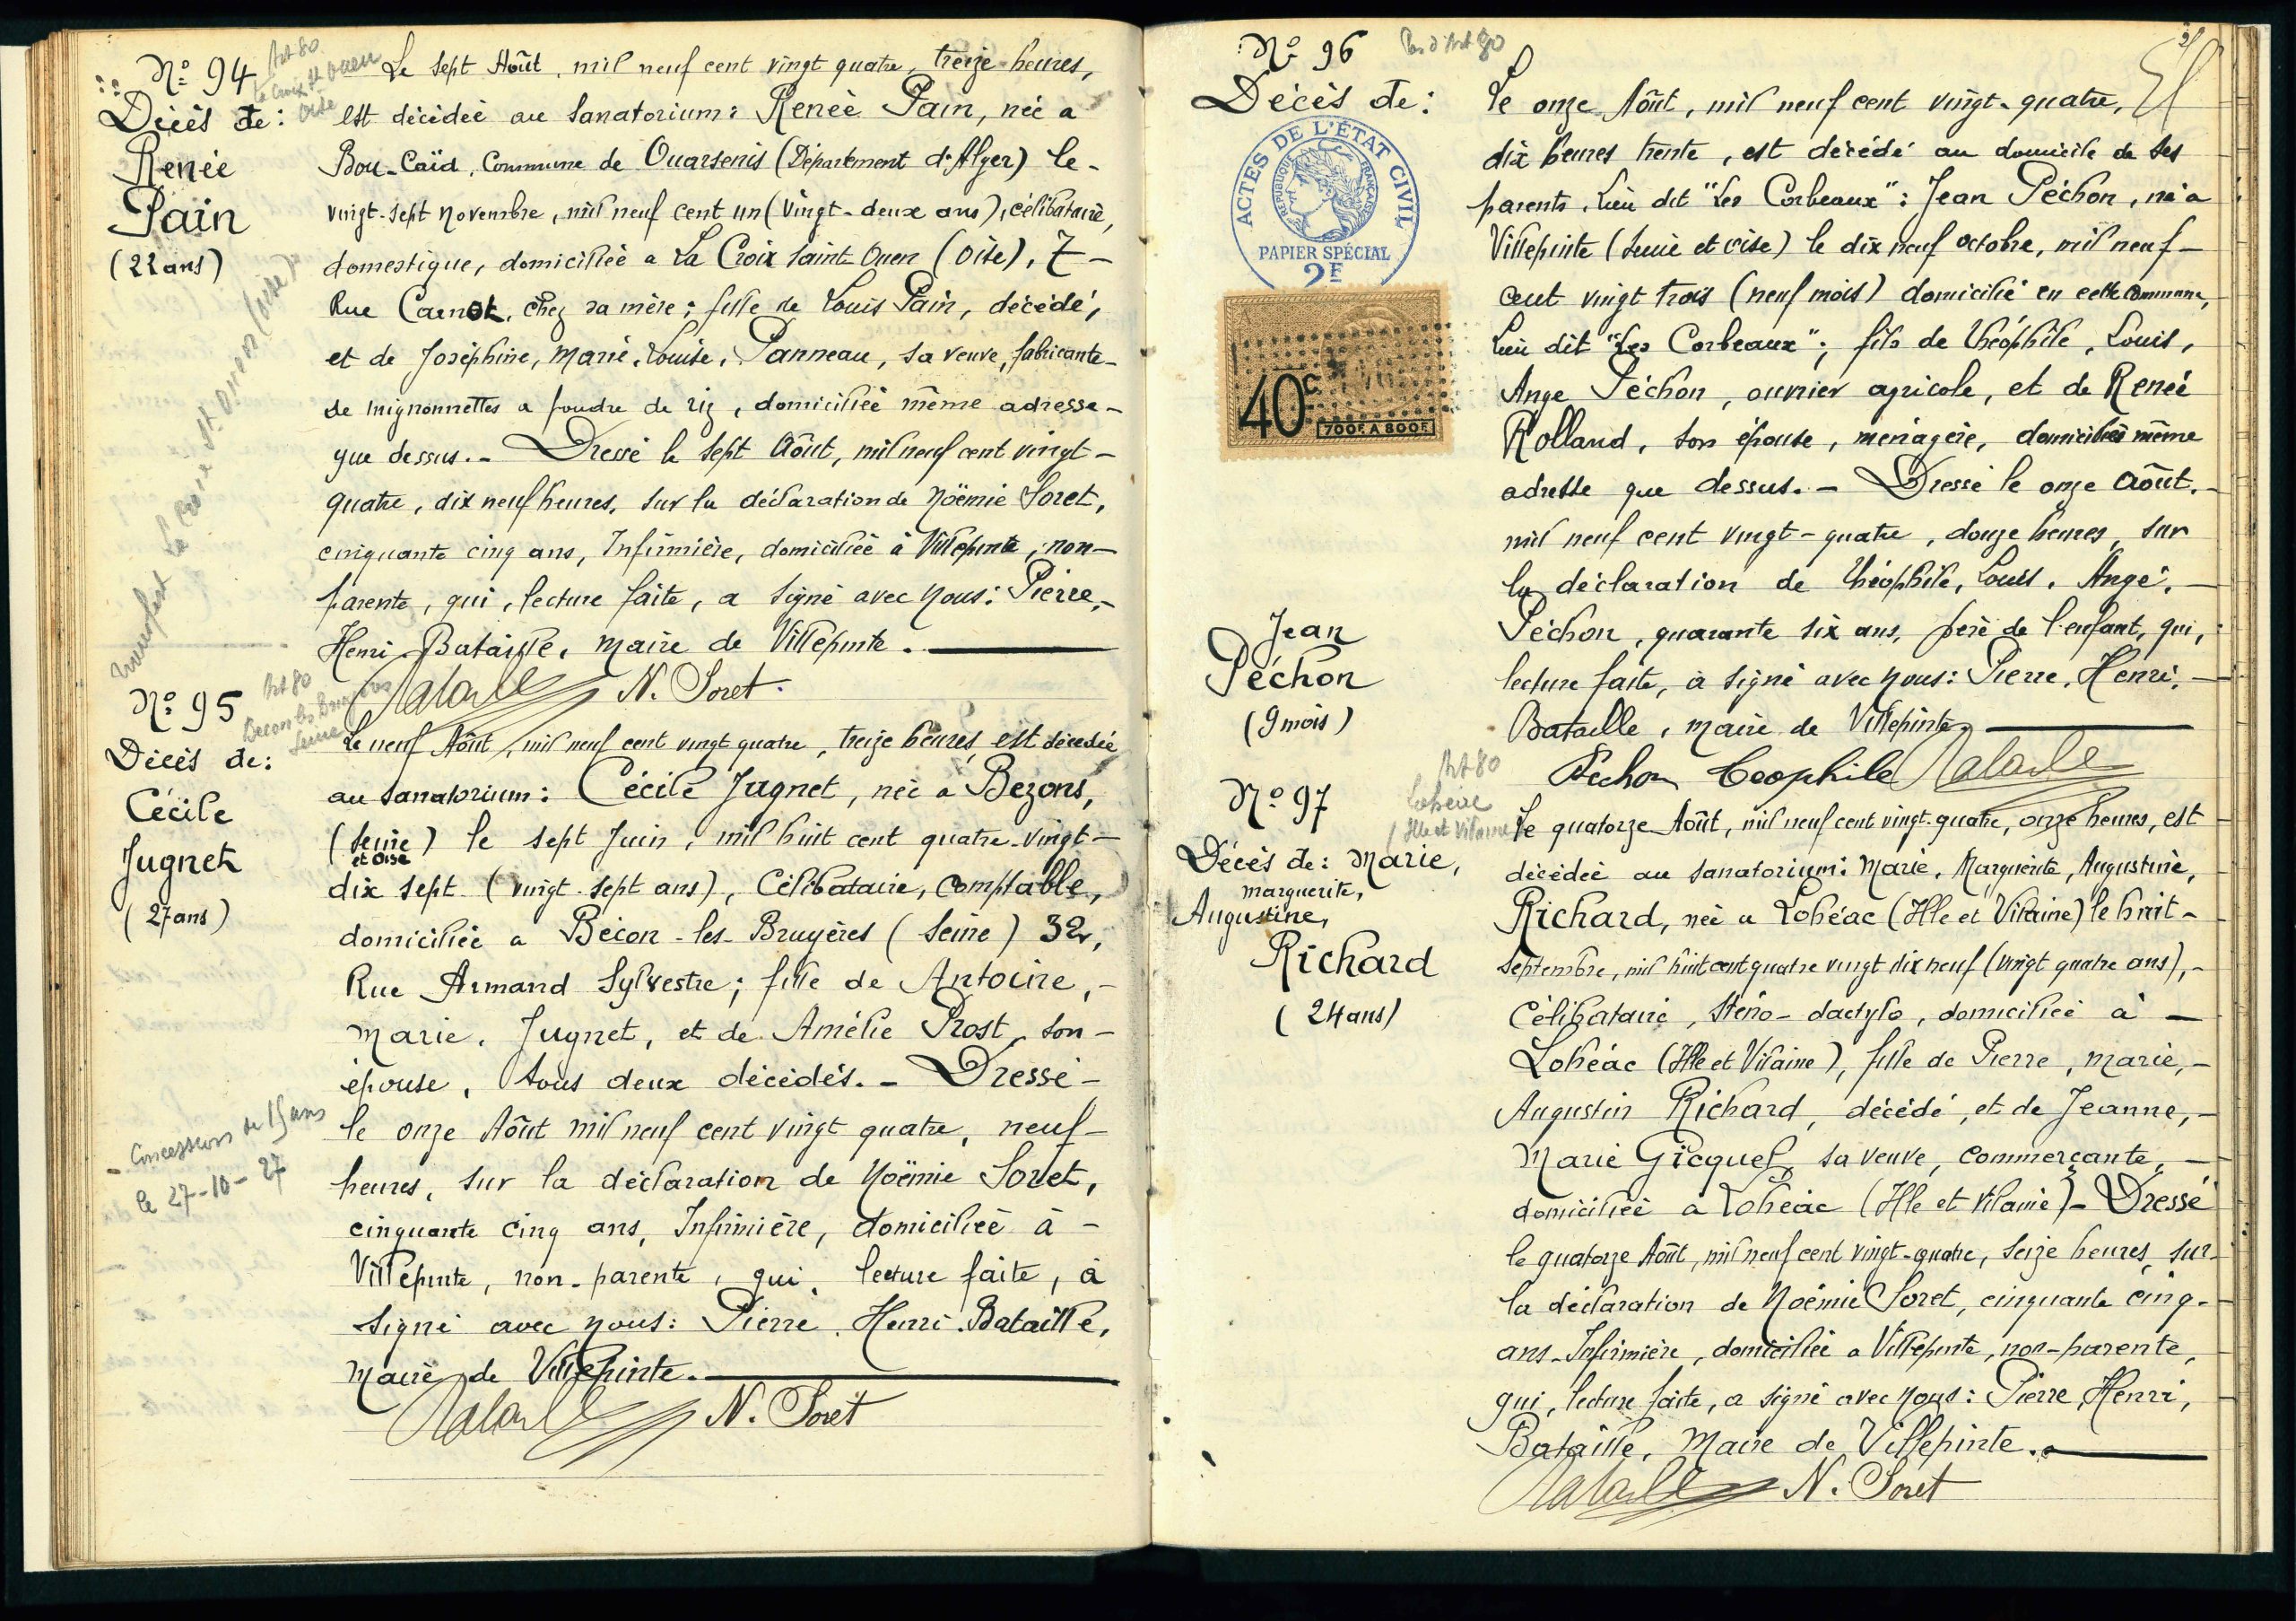 N° 94
Art 80
La Croix St Ouen
Oise
Décès de :
Renée
Pain
(22 ans)
Le sept Août, mil neuf cent vingt quatre, treize heures,
est décédée au sanatorium : Renée Pain, née a
Bou-Caïd, Commune de Ouarsenis (Département d'Alger) le-
vingt-sept novembre, mil neuf cent un (vingt-deux ans), célibataire,
domestique, domiciliée a La Croix Saint-Ouen (Oise), 7-
Rue Carnot, chez sa mère ; fille de Louis Pain, décédé,
et de Joséphine, Marie, Louise, Panneau, sa veuve, fabricante-
de mignonnettes a poudre de riz, domiciliée même adresse-
que dessus.- Dressé le sept Août, mil neuf cent vingt-
quatre, dix neuf heures, sur la déclaration de Noëmie Soret,
cinquante cinq ans, Infirmière, domiciliée à Villepinte, non-
parente, qui, lecture faite, a signé avec nous : Pierre,-
Henri Bataille, Maire de Villepinte.
Bataille N. Soret.
Transfert La Croix St Ouen (Oise)
N° 95
Art 80
Becon les Bruyères
Seine
Décès de :
Cécile
Jugnet
(27 ans)
Le neuf Août, mil neuf cent vingt quatre, treize heures, est décédée
au sanatorium : Cécile Jugnet, née à Bezons,
(Seine) le sept Juin, mil huit cent quatre-vingt-
et Oise
dix sept (vingt-sept ans), Célibataire, comptable,
domiciliée a Bécon-les-Bruyères (Seine) 32,
Rue Armand Sylvestre ; fille de Antoine,-
Marie, Jugnet, et de Amélie Prost, son-
épouse, tous deux décédés.- Dressé-
le onze Août mil neuf cent vingt quatre, neuf-
heures, sur la déclaration de Noëmie Soret,
cinquante cinq ans, Infirmière, domiciliée à-
Villepinte, non-parente, qui, lecture faite, à
signé avec nous : Pierre, Henri, Bataille,
Maire de Villepinte.
Bataille N. Soret
- Concession de 15 ans
le 27-10-27
N° 96
Pas d'Art 80
Décès de :
ACTES DE L'ÉTAT CIVIL
RÉPUBLIQUE FRANÇAISE
PAPIER SPÉCIAL
2F
40c
700F. A 800F.
Jean
Péchon
(9 mois)
Le onze Août, mil neuf cent vingt-quatre,
dix heures trente, est décédé au domicile de ses
parents, lieu dit "Les Corbeaux" : Jean Péchon, né a
Villepinte (Seine et Oise) le dix neuf octobre, mil neuf-
cent vingt trois (neuf mois) domicilié en cette commune,
lieu dit "Les Corbeaux" ; fils de Théophile, Louis,
Ange Péchon, ouvrier agricole, et de Renée
Rolland, son épouse, ménagère, domiciliés même
adresse que dessus.- Dressé le onze Août,-
mil neuf cent vingt-quatre, douze heures, sur
la déclaration de Théophile, Louis, Ange,-
Péchon, quarante six ans, père de l'enfant, qui,
lecture faite, à signé avec nous : Pierre, Henri,-
Bataille, Maire de Villepinte,
Péchon Théophile Bataille
N° 97
Art 80
Lohéac
(Ille et Vilaine)
Décès de : Marie,
Marguerite,
Augustine,
Richard
(24 ans)
Le quatorze Août, mil neuf cent vingt-quatre, onze heures, est
décédée au sanatorium : Marie, Marguerite, Augustine,
Richard, née a Lohéac (Ille et Vilaine) le huit-
septembre, mil huit cent quatre vingt dix neuf (vingt quatre ans),-
Célibataire, sténo-dactylo, domiciliée à-
Lohéac (Ille et Vilaine), fille de Pierre, Marie,-
Augustin Richard, décédé, et de Jeanne,-
Marie Gicquel, sa veuve, commerçante,-
domiciliée a Lohéac (Ille et Vilaine)- Dressé
le quatorze Août, mil neuf cent vingt-quatre, seize heures, sur-
la déclaration de Noémie Soret, cinquante cinq-
ans-Infirmière, domiciliée a Villepinte, non-parente,
qui, lecture faite, a signé avec nous : Pierre, Henri,
Bataille, Maire de Villepinte.
Bataille N. Soret